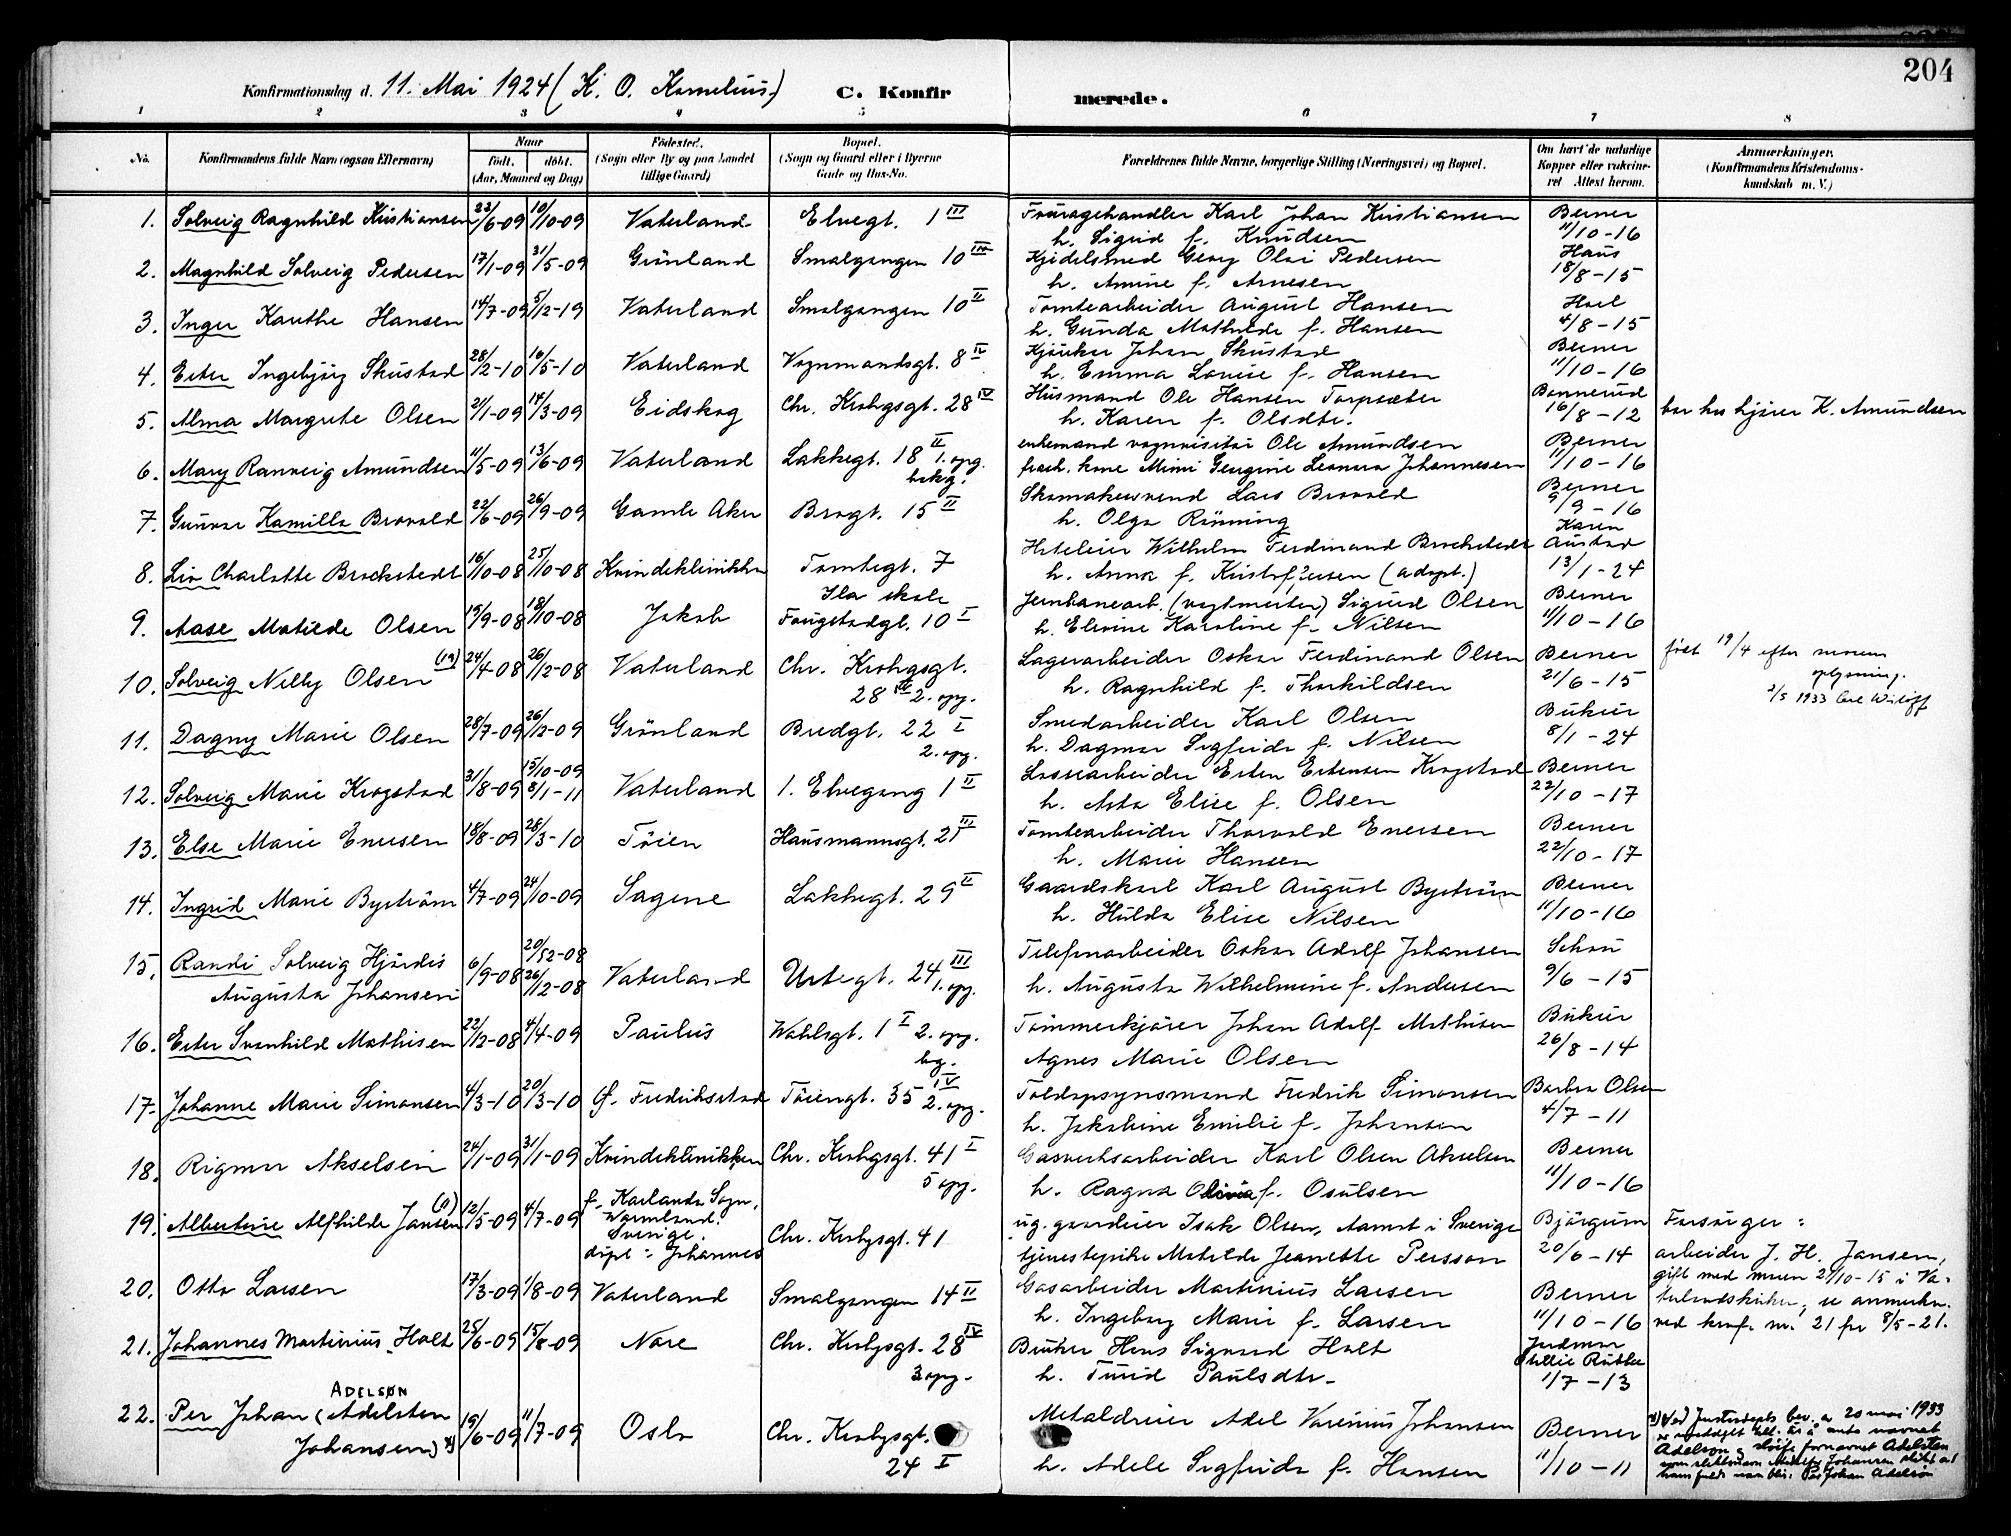 204
Konfirmationsdag d. 11. Mai 1924 (K. O. Kornelius.) C. Konfirmerede.
1 2 3 4 5 6 7 8
No. Konfirmandens fulde Navn (ogsaa Efternavn) Naar født. døbt. (Aar, Maaned og Dag) Fødested. (Sogn eller By og paa Landet tillige Gaard) Bopæl. (Sogn og Gaard eller i Byerne Gade og Hus-No. Forældrenes fulde Navne, borgerlige Stilling (Næringsvei) og Bopæl. Om havt de naturlige Kopper eller vakcineret Attest herom. Anmerkninger. (Konfirmandens Kristendomskundskab m. V.)
1. Solveig Ragnhild Kristiansen 23/6-09 10/10-09 Vaterland Elvegt. 1 III Fouragehandler Karl Johan Kristiansen Berner
h. Sigrid f. Knudsen 11/10-16
2. Magnhild Solveig Pedersen 17/1-09 31/5-09 Grønland Smalgangen 10 Kjedelsmed Georg Olai Pedersen Haus
h. Amine f. Arnesen 18/8-15
3. Inger Kanthe Hansen 14/7-09 5/12-19 Vaterland Smalgangen 10 II Tomtearbeider August Hansen Hoel
h. Gunda Mathilde f. Hansen 4/8-15
4. Ester Ingebjørg Skustad 28/2-10 16/5-10 Vaterland Vognmandsgt. 8 IV Kjørekar Johan Skustad Berner
h. Emma Lovise f. Hansen 11/10-16
5. Alma Margrete Olsen 21/1-09 14/3-09 Eidskog Chr. Krohgsgt. 28 IV Husmand Ole Hansen Torpsæter Bonnerud
h. Karen f. Olsdtr. 16/8-12 bor hos kjører K. Amundsen
6. Mary Ranveig Amundsen 11/5-09 13/6-09 Vaterland Lakkegt. 18 II 1. opg. bakg. enkemand vognvisitør Ole Amundsen Berner
frask. kone Mimi Georgine Leonora Johannesen 11/10-16
7. Gunvor Kamilla Brovold 22/6-09 26/9-09 Gamle Aker Brogt. 15 II Skomakersvend Lars Brovold Berner
h. Olga Rønning 9/9-16
8. Liv Charlotte Brockstedt 16/10-08 25/10-08 Kvindeklinikken Tomtegt. 7 Hoteleier Wilhelm Ferdinand Brockstedt Karen Austad
h. Anna f. Kristoffersen (adopt.) 13/1-24
9. Aase Matilde Olsen 19/9-08 18/10-08 Jakob Ila skole Fougstadgt. 10 I Jernbanearb. (vogtmester) Sigurd Olsen Berner
h. Elevine Karoline f. Nilsen 11/10-16
10. Solveig Nelly Olsen (19) 24/4-08 26/12-08 Vaterland Chr. Krohgsgt. Lagerarbeider Oskar Ferdinand Olsen Berner født 19/4 efter morens
28 IV 2. opg. h. Ragnhild f. Thorkildsen 21/6-15 oplysning.
2/5 1933
11. Dagny Marie Olsen 28/7-09 26/12-09 Grønland Bredgt. 22 I 2. opg. Smedarbeider Karl Olsen Bukur
h. Dagmar Sigfride f. Nilsen 8/1-24
12. Solveig Marie Krogstad 31/8-09 15/10-09 8/1-11 Vaterland 1. Elvegang 1 II Lossearbeider Esten Estensen Krogstad Berner
h. Asta Elise f. Olsen 22/10-17
13. Else Marie Enersen 18/8-09 28/3-10 Tøien Hausmannsgt. 21 III Tomtearbeider Thorvald Enersen Berner
h. Marie Hansen 22/10-17
14. Ingrid Marie Byström 4/7-09 24/10-09 Sagene Lakkegt. 29 II Gaardskarl Karl August Byström Berner
h. Hulda Elise Nilsen 11/10-16
15. Randi Solveig Hjørdis 6/9-08 20/52-08 Vaterland Urtegt. 24 III 1. opg. Telefonarbeider Oskar Adolf Johansen Schou
Augusta Johansen 26/12-08 h. Augusta Wilhelmine f. Andersen 9/6-15
16. Ester Svanhild Mathisen 22/12-08 4/4-09 Paulus Wahlsgt. 1 I 2. opg. bg. Tømmerkjører Johan Adolf Mathisen Bukur
Agnes Marie Olsen 26/8-14
17. Johanne Marie Simonsen 4/3-10 20/3-10 Gl. Fredriksstad Tøiengt. 35 IV 2. opg. Toldopsynsmand Fredrik Simonsen Barbra Olsen
h. Jakobine Emilie f. Johansen 4/7-11
18. Rigmor Akselsen 24/1-09 31/1-09 Kvindeklinikken Chr. Krohgsgt. 41 I 5 opg. Gasverksarbeider Karl Olsen Akselsen Berner
h. Ragna Olivia f. Osulsen 11/10-16
19. Albertine Alfhilde Jansen (1) 12/5-09 4/7-09 f. Karlanda Sogn, Warmland, Sverige. døpt: Johannes Chr. Krohgsgt. 41 ug. gaardeier Isak Olsen, Aamot i Sverige Bjørgum Forsørger:
tjenestepike Matilde Jeanette Persson 20/6-14 arbeider J. H. Jansen,
gift med moren 21/10-15 i Va-
20. Otto Larsen 17/3-09 1/8-09 Vaterland Smalgangen 14 II Gasarbeider Martinius Larsen Berner terlandskirken, se anmerkn.
h. Ingeborg Marie f. Larsen 11/10-16 ved konf. nr. 21 fra 8/5-21.
21. Johannes Martinius Holt 25/6-09 15/8-09 Nore Chr. Krohgsgt. 28 IV 3 opg. Bruker Hans Sigvard Holt Jordmor
h. Turid Paulsdtr. 1/7-13
ADELSØN
22. Per Johan (Adelsten 19/6-09 11/7-09 Oslo Chr. Krohgsgt. Metaldreier Adel Varenius Johansen Berner x) Ved Justisdepts bev. av 20 mai 1933
Johansen) x) 24 I h. Adele Sigfride f. Hansen 11/10-11 er meddelt till. til å anta navnet
Adelsøn og sløife fornavnet Adelsten
hans fulde navn blir: Per Johan Adelsøn